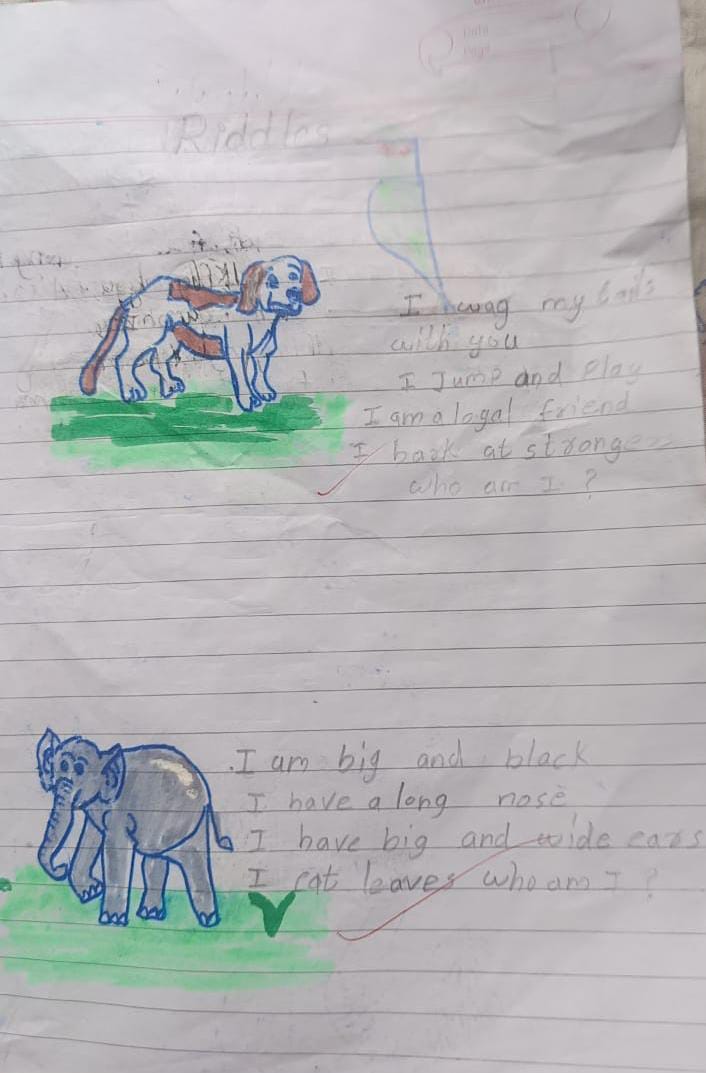 Date
Page
Riddles
I wag my tails
with you
I Jump and Play
I am a logal friend
I bark at stranger
who am I ?
.I am big and black
I have a long nose
I have big and wide ears
I eat leaves who am I ?